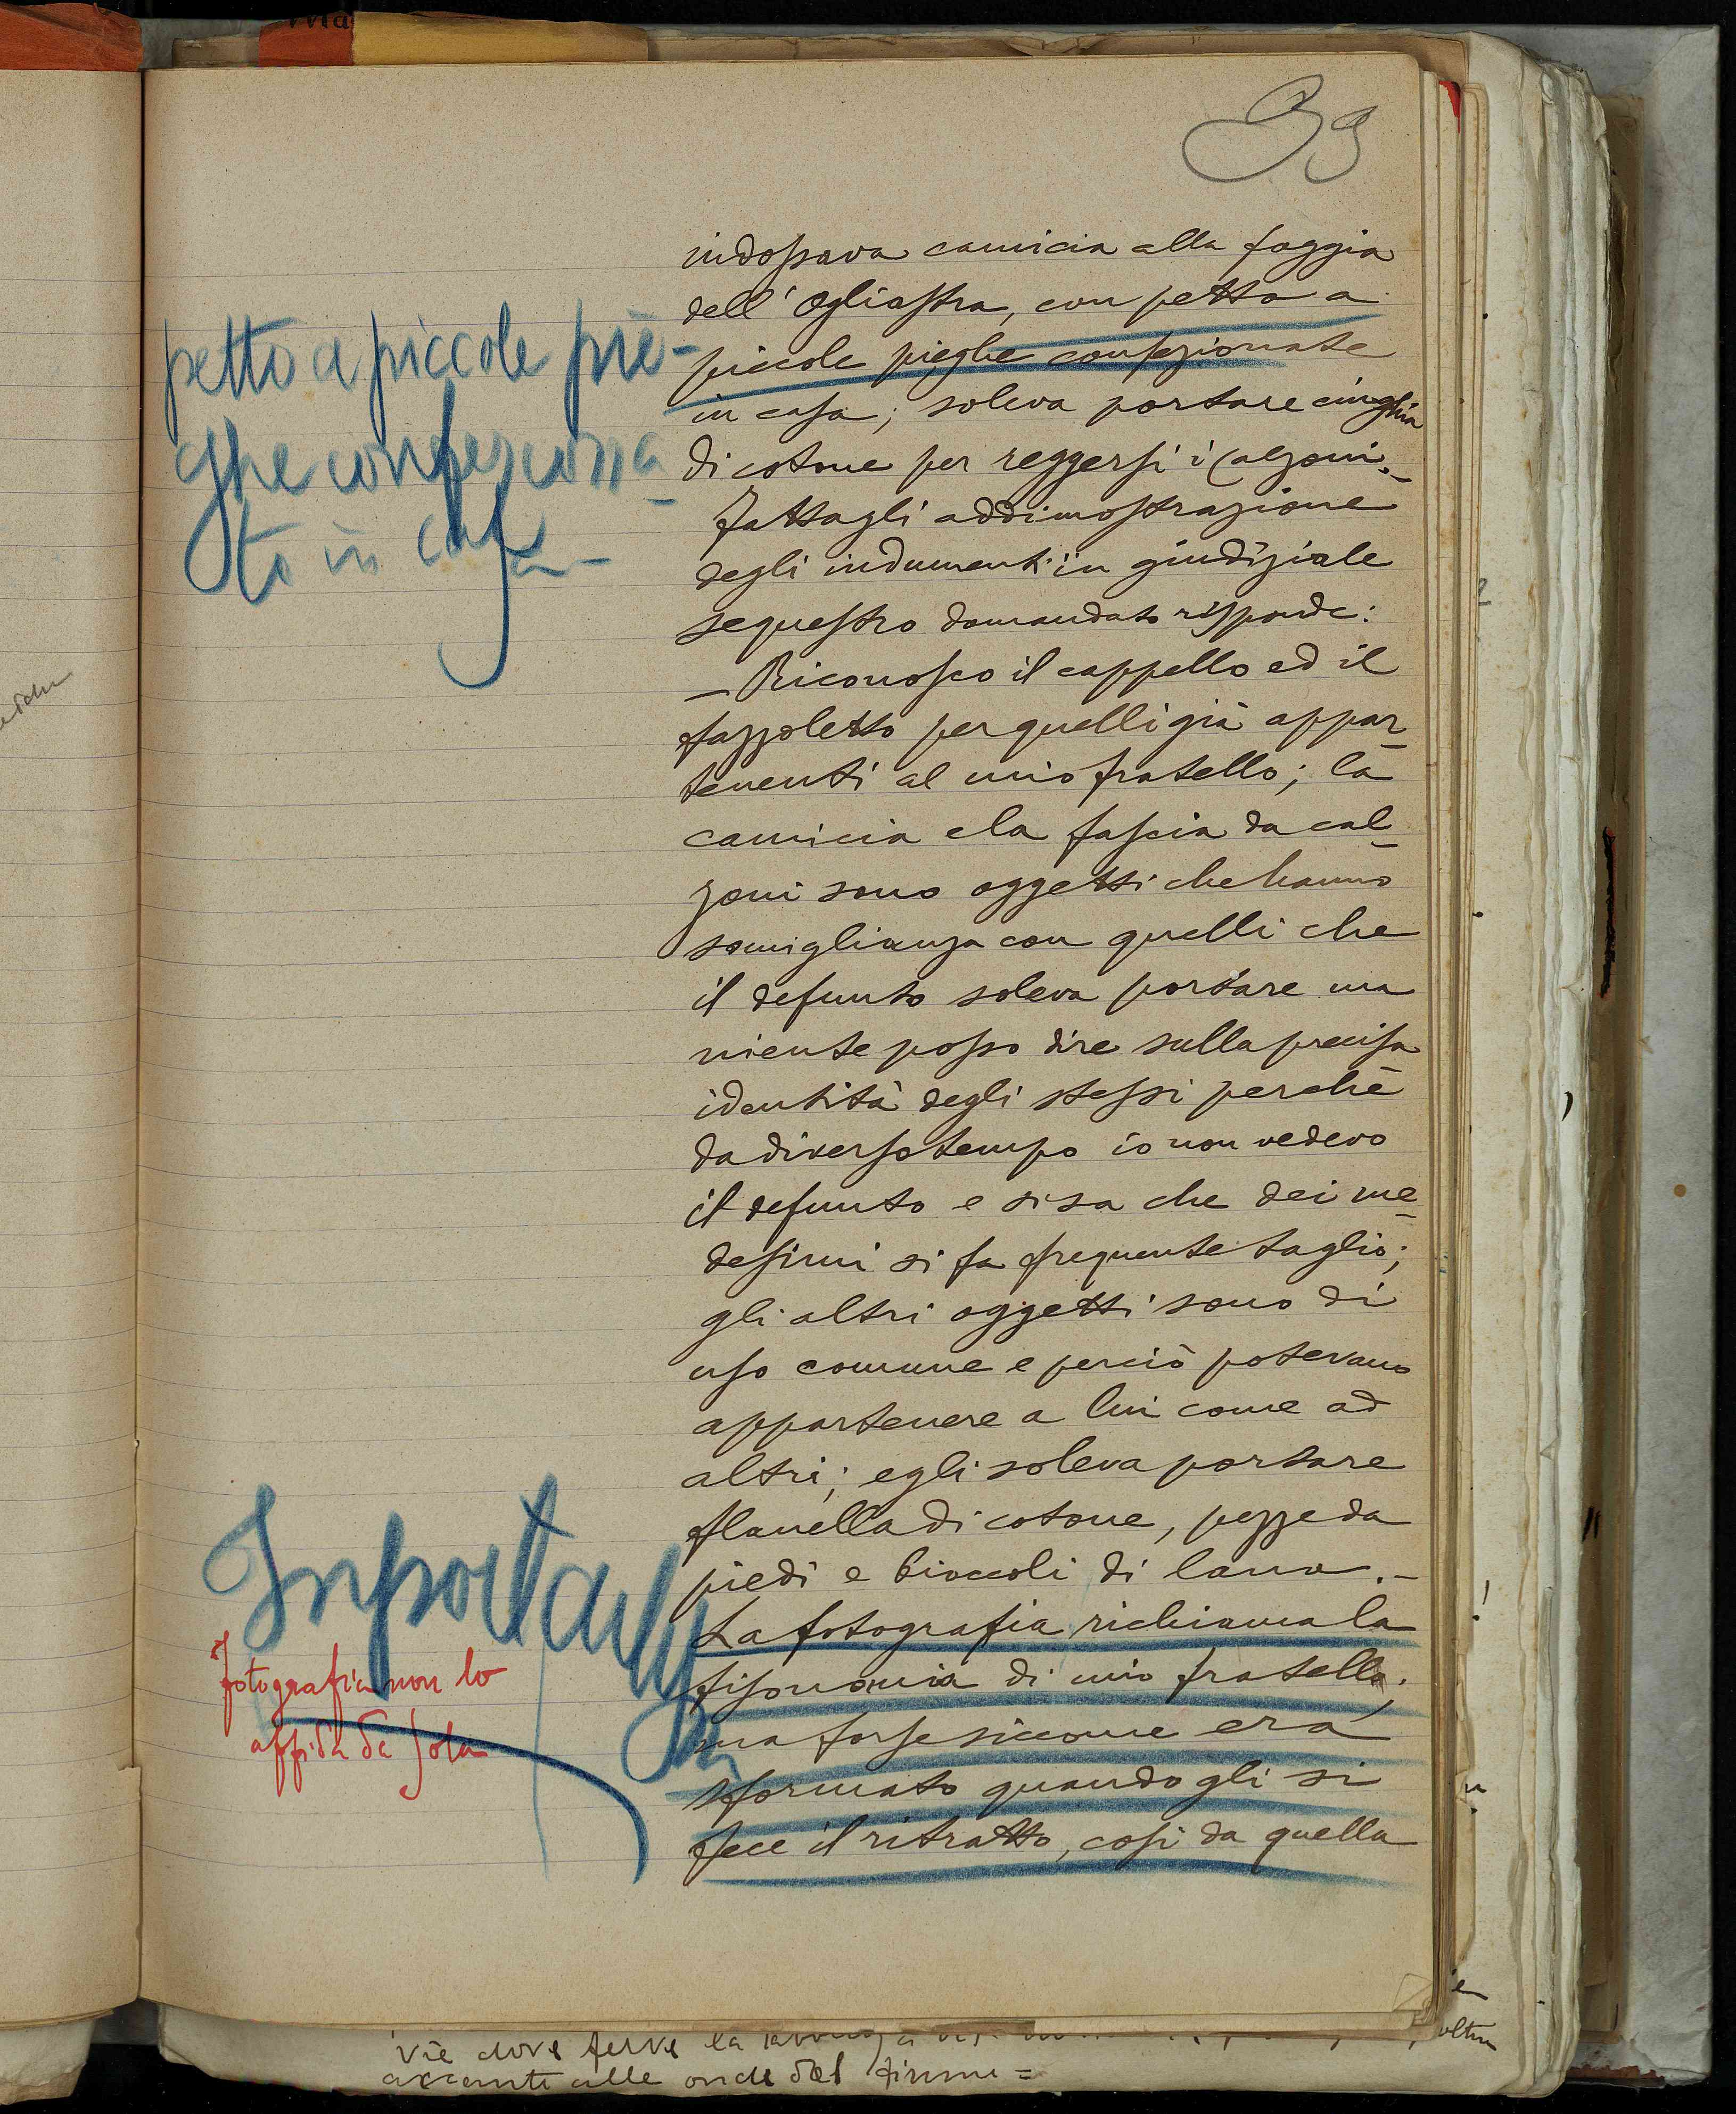 39
indossava camicia alla foggia
dell' Ogliastra, con petto a
piccole pieghe confezionate
in casa; soleva portare cinghia
di cotone per reggersi i calzoni.-
Fattagli addimostrazione
degli indumenti in giudiziale
sequestro domandato risponde:
- Riconosco il cappello ed il
fazzoletto per quelli già appar-
tenenti al mio fratello; la
camicia e la fascia da cal-
zoni sono oggetti che hanno
somiglianza con quelli che
il defunto soleva portare ma
niente posso dire sulla precisa
identità degli stessi perchè
da diverso tempo io non vedevo
il defunto e si sa che dei me-
desimi si fa frequente taglio;
gli altri oggetti sono di
uso comune e perciò potevano
appartenere a lui come ad
altri; egli soleva portare
flanella di cotone, pezze da
piedi e bioccoli di lana.-
La fotografia richiama la
fisonomia di mio fratello;
ma forse siccome era
sformato quando gli si
fece il ritratto, così da quella
petto a piccole pie-
ghe confeziona-
te in casa-
fotografia non lo
accanto alle onde del fiume =